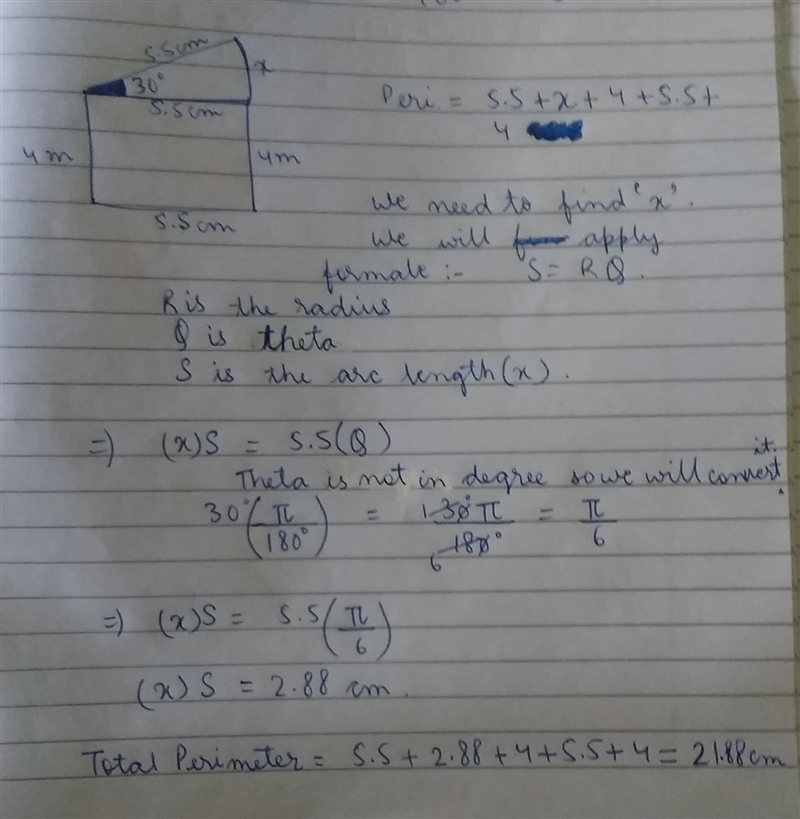 5.5cm
x
30°
5.5cm
4m
4m
5.5cm
Peri. = 5.5 + x + 4 + 5.5 +
4
We need to find 'x'.
We will apply
formale :- S = RQ.
R is the radius
Q is theta
S is the arc length (x).
=) (x)S = 5.5(Q)
Theta is not in degree so we will convert it.
30° (π/180°) = 130°π/6 180° = π/6
=) (x)S = 5.5 (π/6)
(x) S = 2.88 cm.
Total Perimeter = 5.5 + 2.88 + 4 + 5.5 + 4 = 21.88cm